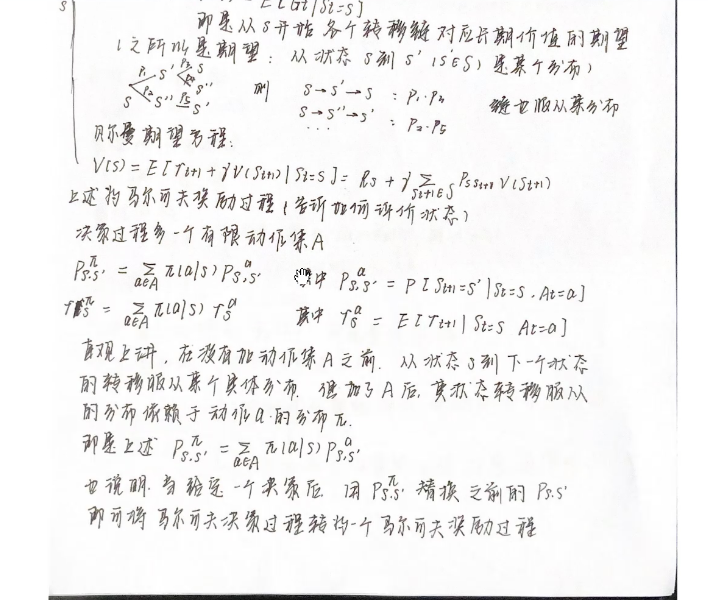 = E[Gt|St=s]
s
即是从S开始各个转移链对应长期价值的期望
(之所以是期望：从状态S到S'(S'∈S)是某个分布)
P1 S' P3 S P4 S''
S P2 S'' P5 S'
则 S→S'→S : P1·P4
S→S''→S' : P2·P5 链也服从某分布
...
贝尔曼期望方程:
V(s) = E[rt+1 + γV(St+1)|St=s] = Rs + γ Σ St+1∈S Pss t+1 V(St+1)
上述为马尔可夫奖励过程(告诉如何评价状态)
决策过程多一个有限动作集A
P^π s,s' = Σ a∈A π(a|s) P^a s,s' 其中 P^a s,s' = P[St+1=s'|St=s, At=a]
r^π s = Σ a∈A π(a|s) r^a s 其中 r^a s = E[rt+1|St=s At=a]
直观上讲，在没有加动作集A之前，从状态s到下一个状态
的转移服从某个具体分布，但加了A后，其状态转移服从
的分布依赖于动作a的分布π.
即是上述 P^π s,s' = Σ a∈A π(a|s) P^a s,s'
也说明，当给定一个决策后，用 P^π s,s' 替换之前的 Ps,s'
即可将马尔可夫决策过程转为一个马尔可夫奖励过程